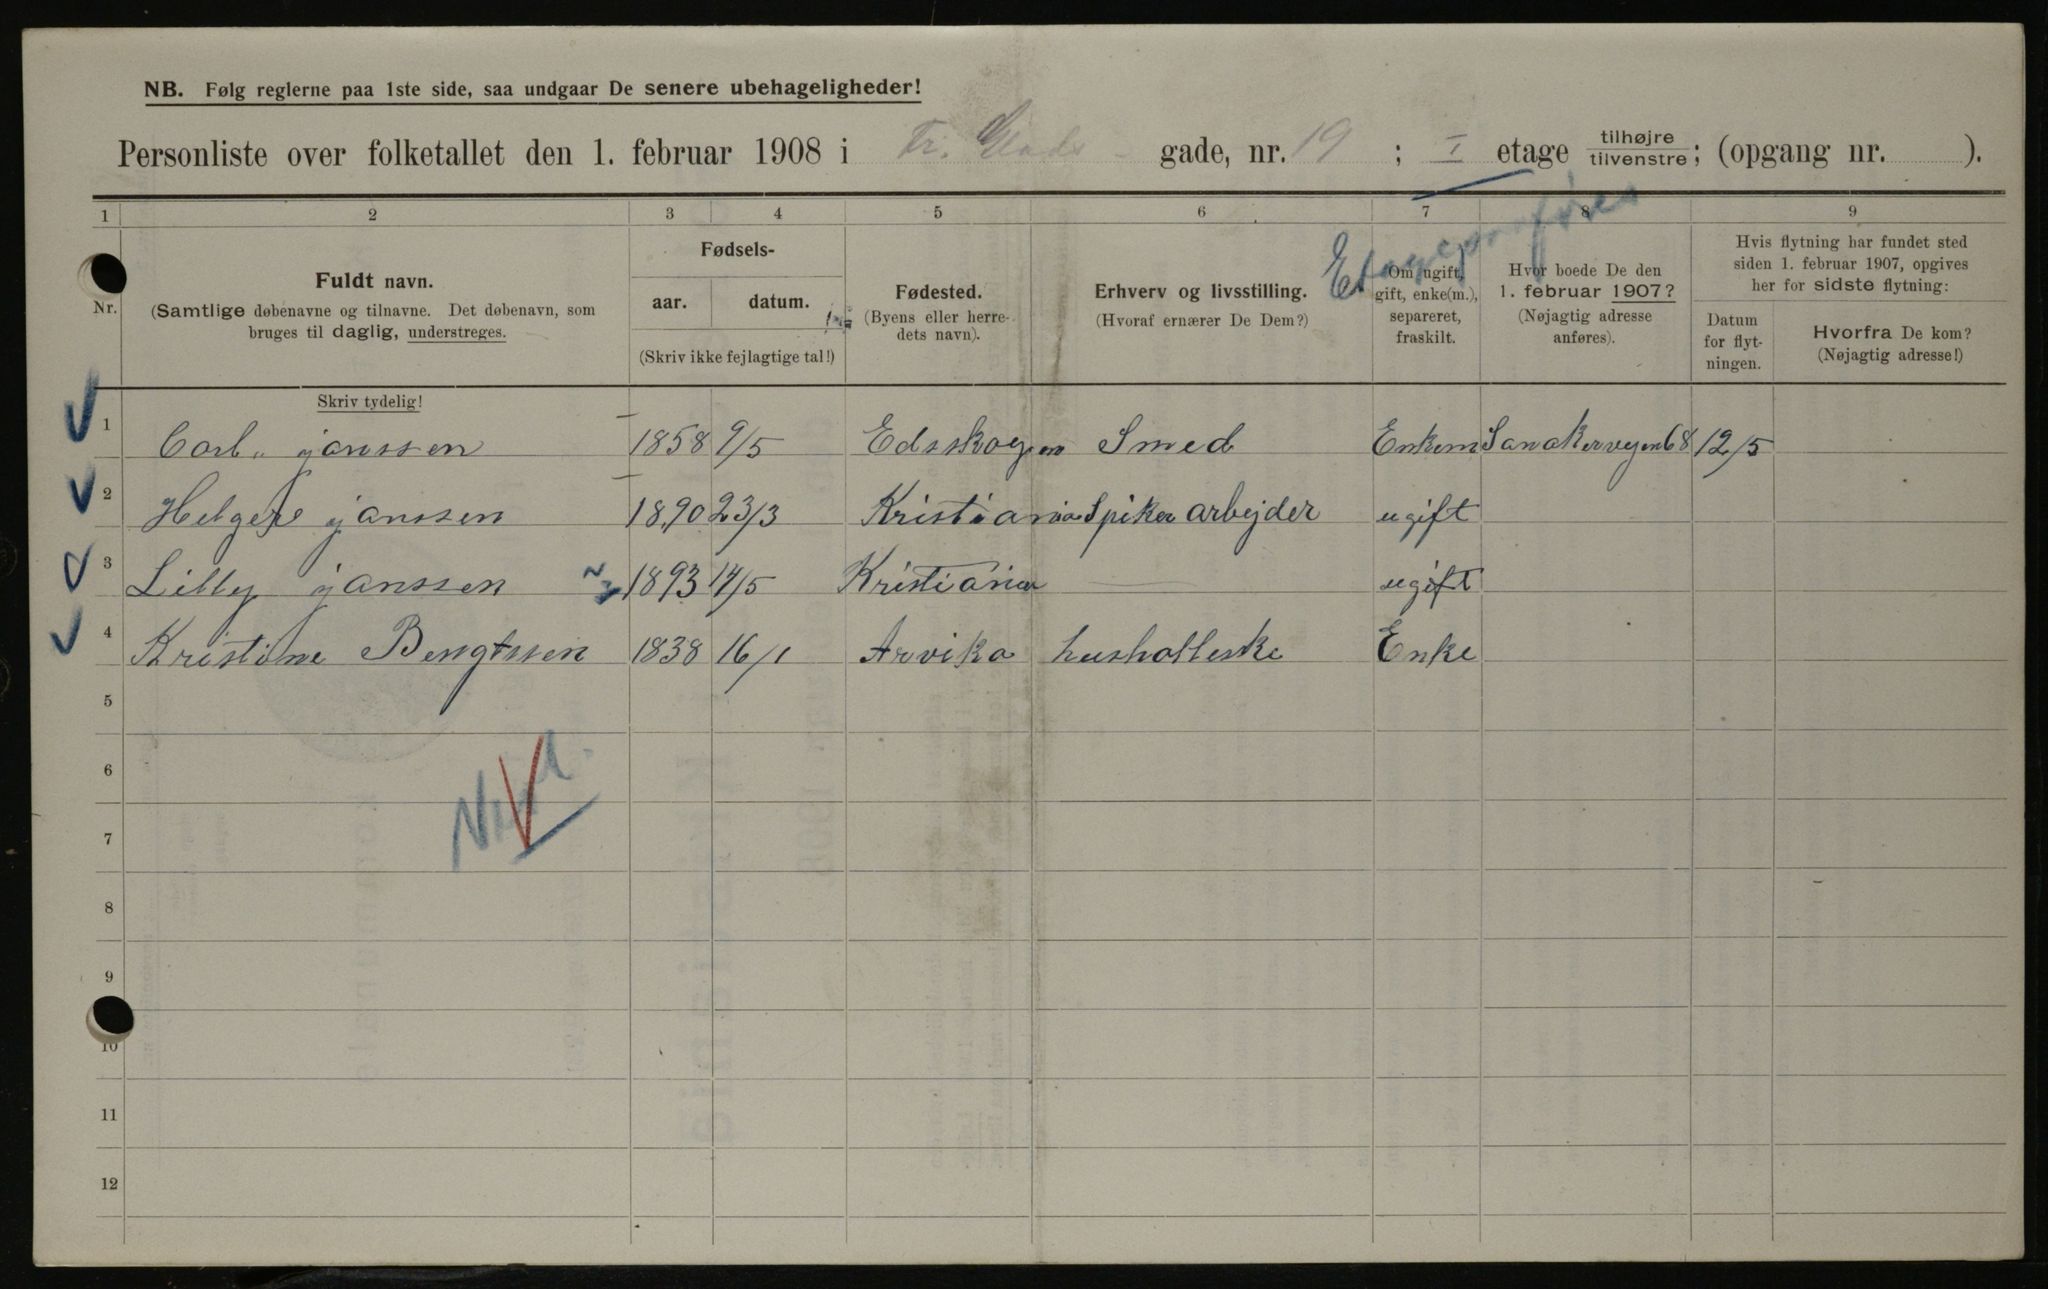 NB. Følg reglerne paa 1ste side, saa undgaar De senere ubehageligheder!
Personliste over folketallet den 1. februar 1908 i Fr. Glads gade, nr. 19 ; I etage tilhøjre tilvenstre; (opgang nr. ).
1 2 3 4 5 6 7 8 9
Nr.
Fuldt navn.
(Samtlige døbenavne og tilnavne. Det døbenavn, som
bruges til daglig, understreges.
Skriv tydelig!
Fødsels-
aar. datum.
(Skriv ikke fejlagtige tal!)
Fødested.
(Byens eller herre-
dets navn).
Erhverv og livsstilling.
(Hvoraf ernærer De Dem?)
Om ugift,
gift, enke(m.),
separeret,
fraskilt.
Hvor boede De den
1. februar 1907?
(Nøjagtig adresse
anføres).
Hvis flytning har fundet sted
siden 1. februar 1907, opgives
her for sidste flytning:
Datum
for flyt-
ningen.
Hvorfra De kom?
(Nøjagtig adresse!)
1 Carl janssen 1858 9/5 Edsskogen Smed Enkem Sanakervejen 68 12/5
2 Helger janssen 1890 23/3 Kristiania Spiker arbejder ugift
3 Lilly janssen 1893 14/5 Kristiania — ugift
4 Kristine Bengtssen 1838 16/1 Arvika husholleske Enke
5
6
7
8
9
10
11
12